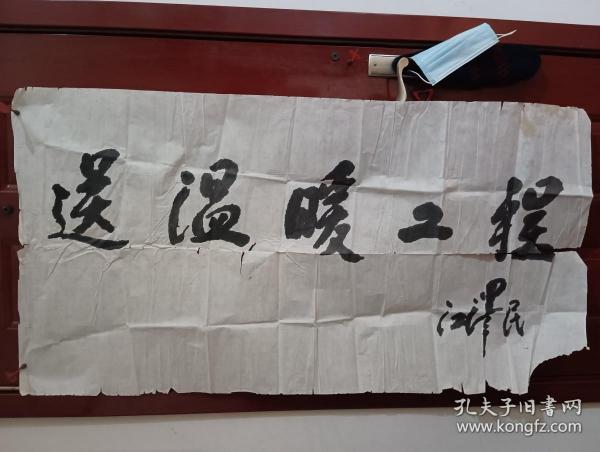 送温暖工程
江泽民
孔夫子旧書网
www.kongfz.com